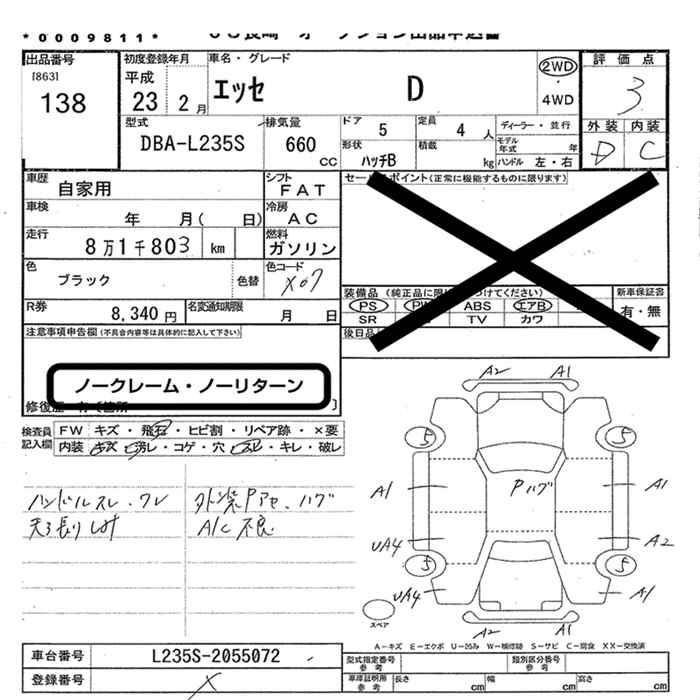 *0009811*
出品番号
[863]
138
初度登録年月
平成
23 2月
車名・グレード
エッセ D
2WD
・
4WD
評価点
3
外装 内装
D C
型式
DBA-L235S
排気量
660
cc
ドア
5
定員
4 人
ディーラー・並行
形状
ハッチB
積載
kg
モデル年式 年
ハンドル 左・右
車歴
自家用
シフト
FAT
車検
年 月( 日)
冷房
AC
走行
8万1千803 km
燃料
ガソリン
色
ブラック
色替
色コード
X07
R券
8,340円
名変通知期限
月 日
セールスポイント(正常に機能するものに限ります)
装備品
PS PW ABS エアB
SR TV カワ
新車保証書
有・無
後日品
注意事項申告欄(不具合内容等は具体的に記入して下さい)
ノークレーム・ノーリターン
検査員記入欄
FW キズ・飛石・ヒビ割・リペア跡・×要
内装 キズ・汚レ・コゲ・穴・スレ・キレ・破レ
ハンドルスレ・ワレ
天張りしみ
外装Pアセ・ハゲ
A/C不良
A2 A1
5 5
Pハゲ
A1 A1
UA4 A2
5 5
UA4 A1
スペア
A2 A1
A-キズ E-エクボ U-凹み W-補修跡 S-サビ C-腐食 XX-交換済
車台番号
L235S-2055072
登録番号
X
型式指定番号
参考
類別区分番号
参考
車庫証明用
参考
長さ cm
幅 cm
高さ cm